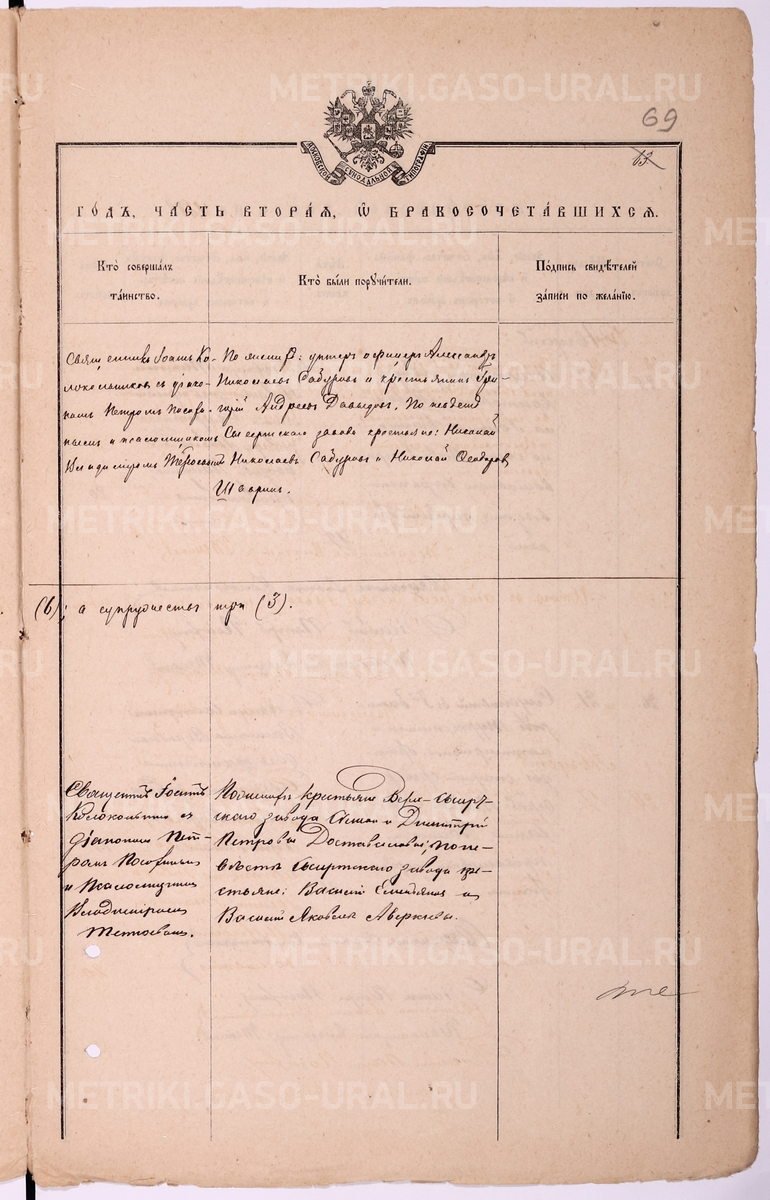 METRIKI.GASO-URAL.RU
69
63
МОСКОВСКОЙ СѴНОДАЛЬНОЙ ТИПОГРАФІИ
ГО́ДЪ, ЧА́СТЬ ВТОРА́Я, Ѽ БРАКОСОЧЕТА́ВШИХСЯ.
Кто̀ соверша́лъ
та́инство.
Кто̀ бы́ли поручи́тели.
По́дпись свидѣ́телей
за́писи по жела́нію.
Священникъ Іоаннъ Ко-
локольниковъ съ діако-
номъ Петромъ
и псаломщикомъ
Владиміромъ
По женихѣ: унтеръ офицеръ Александръ
Николаевъ Сабуровъ и крестьянинъ Гри-
горій Андреевъ Давыдовъ. По невѣстѣ
Сысертскаго завода крестьяне: Николай
Николаевъ Сабуровъ и Николай Ѳеодоровъ
Шаринъ.
(6); а супружествъ три (3).
Священникъ Іоаннъ
Колокольниковъ съ
діакономъ Пет-
ромъ
и Псаломщикомъ
Владиміромъ
По женихѣ крестьяне Верхъ-Сысерт-
скаго завода и Димитрій
Петровы ; по не-
вѣстѣ Сысертскаго завода кре-
стьяне: Василій и
Василій Яковлевъ Аверкіевы.